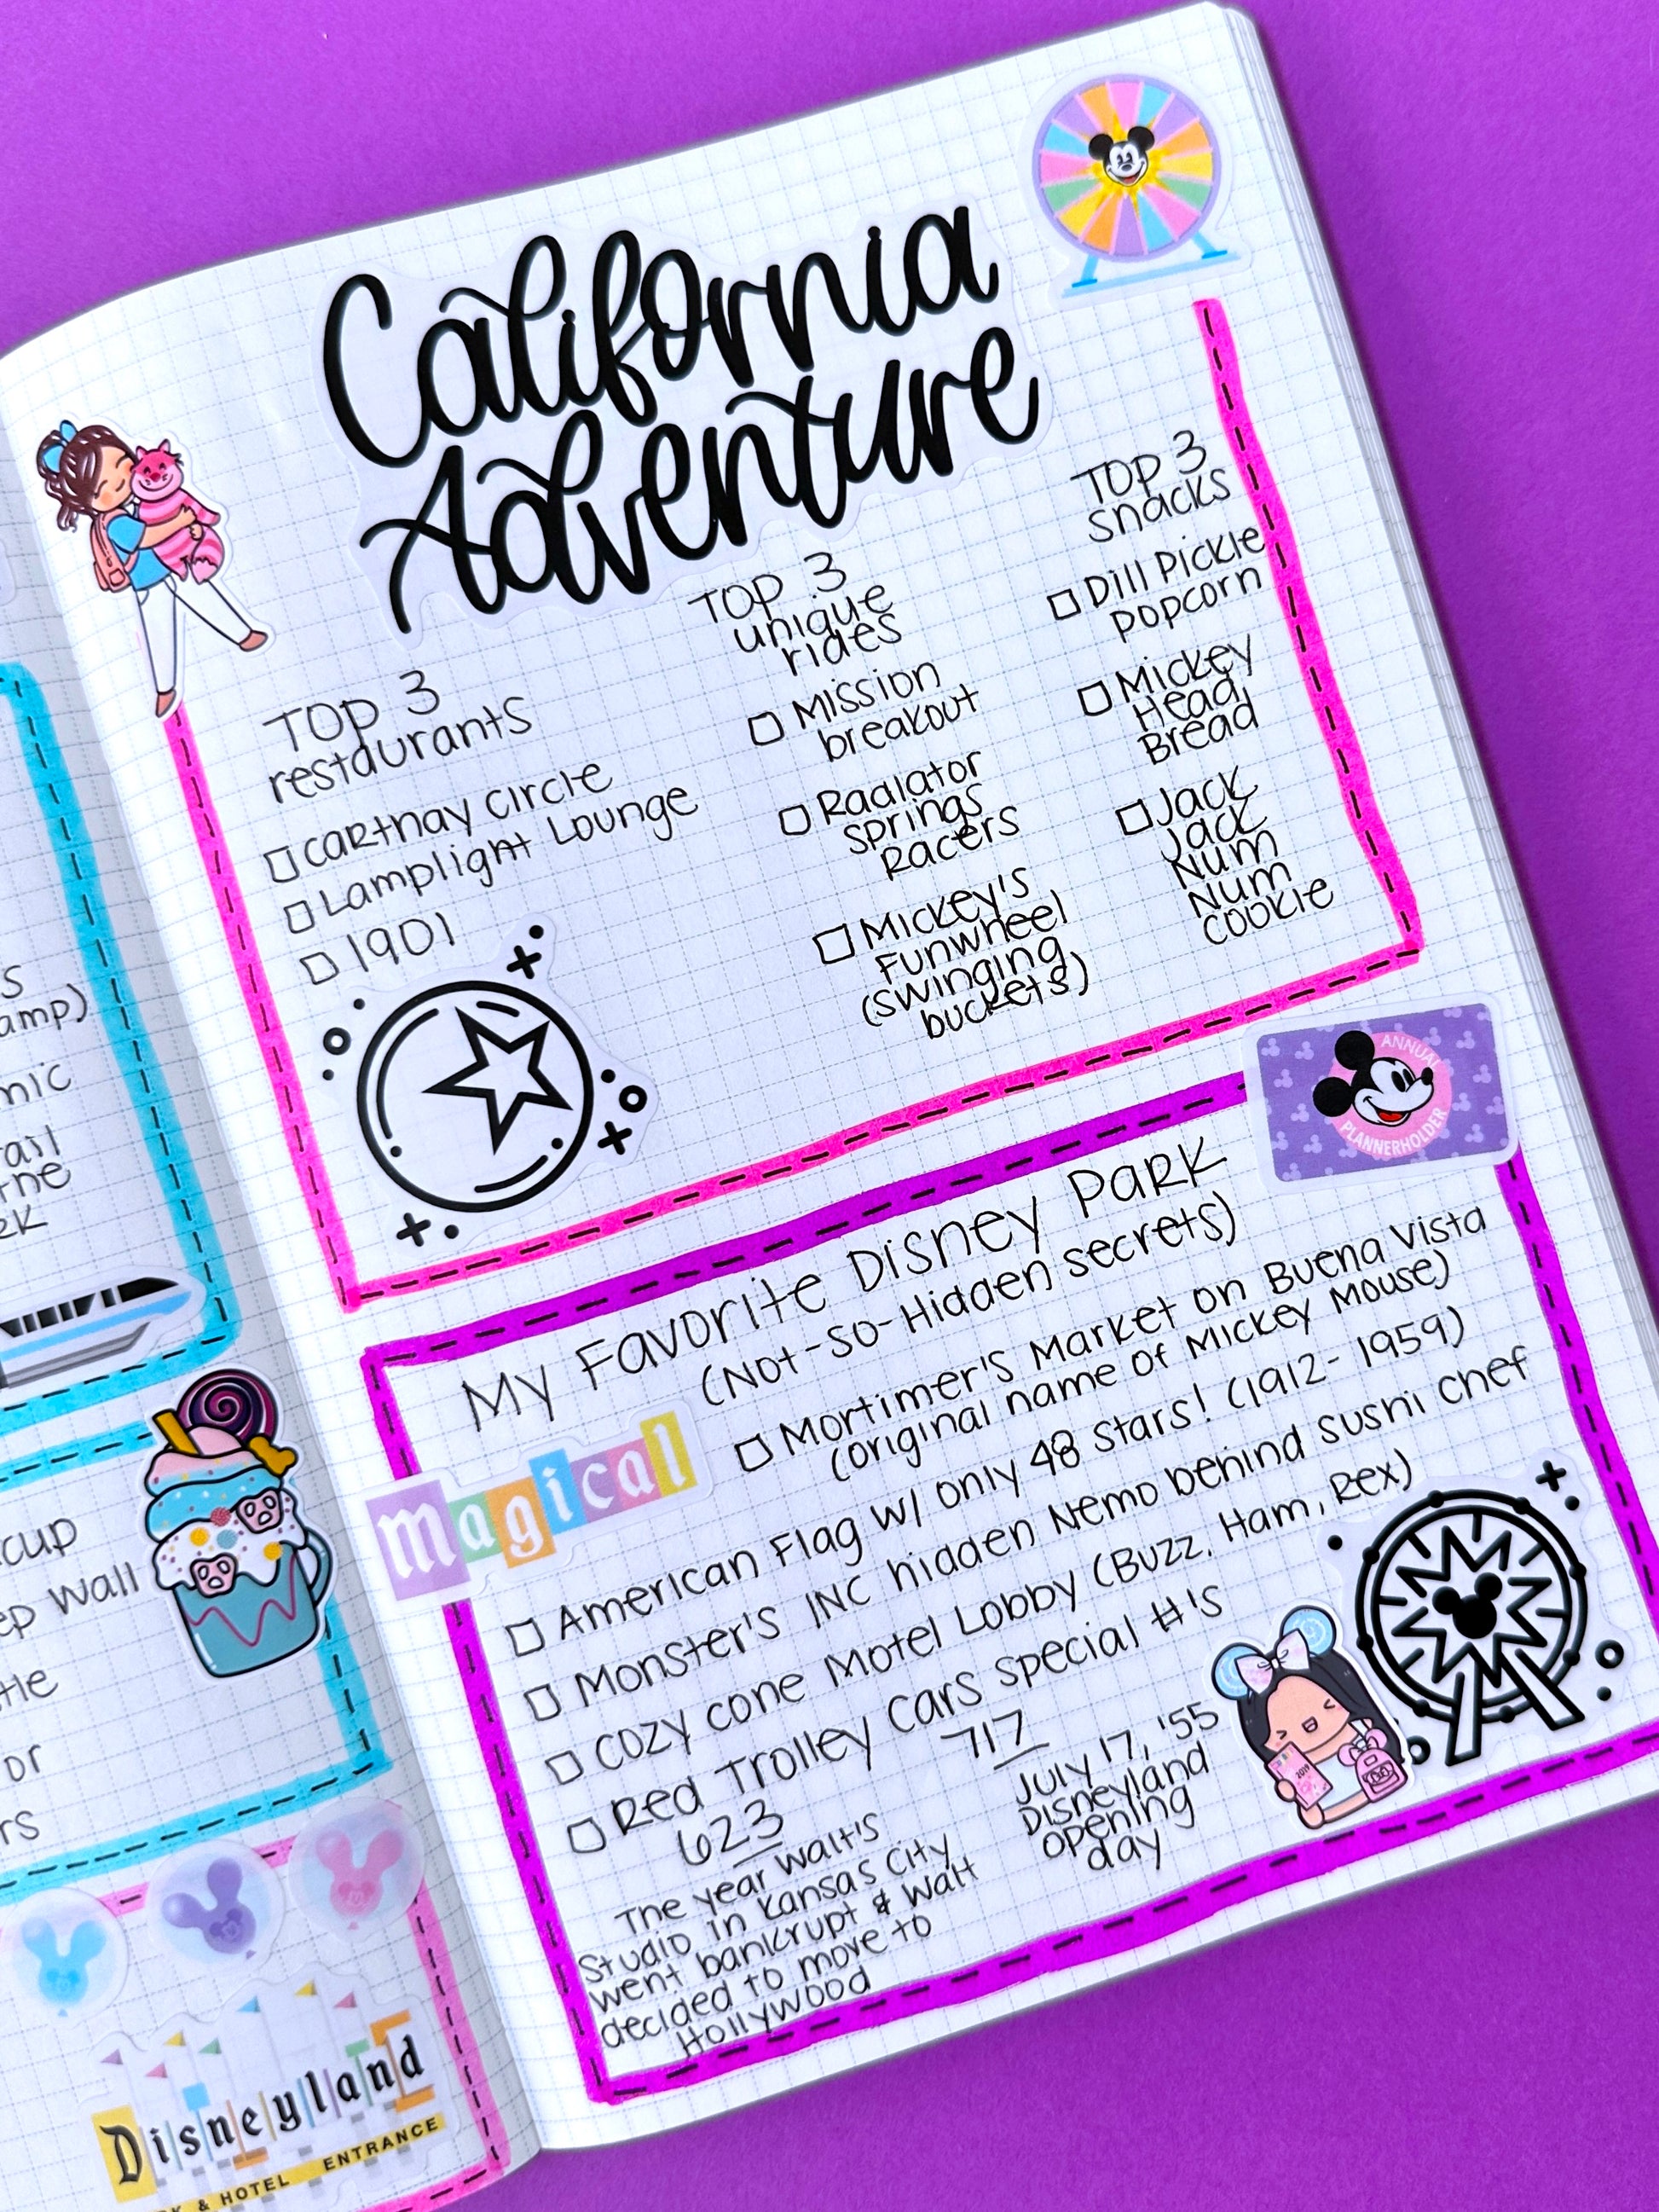 California
Adventure
TOP 3
restaurants
CARTHAY CIRCLE
Lamplight Lounge
1901
TOP 3
unique
rides
Mission
breakout
Radiator
Springs
Racers
Mickey's
Funwheel
(Swinging
buckets)
TOP 3
snacks
Dill Pickle
popcorn
Mickey
Head
Bread
Jack
Jack
Num
Num
cookie
ANNUAL
PLANNERHOLDER
My Favorite Disney Park
(Not-So-Hidden secrets)
magical
Mortimer's Market on Buena Vista
(original name of Mickey Mouse)
American Flag w/ only 48 stars! (1912-1959)
Monster's INC hidden Nemo behind sushi chef
Cozy cone Motel Lobby (Buzz, Ham, Rex)
Red Trolley Cars special #'s
623
The year Walt's
Studio in Kansas City
went bankrupt & Walt
decided to move to
Hollywood
717
July 17, '55
Disneyland
opening
day
2019
S
amp)
mic
ail
rne
cup
ep wall
or
rs
Disneyland
& HOTEL ENTRANCE